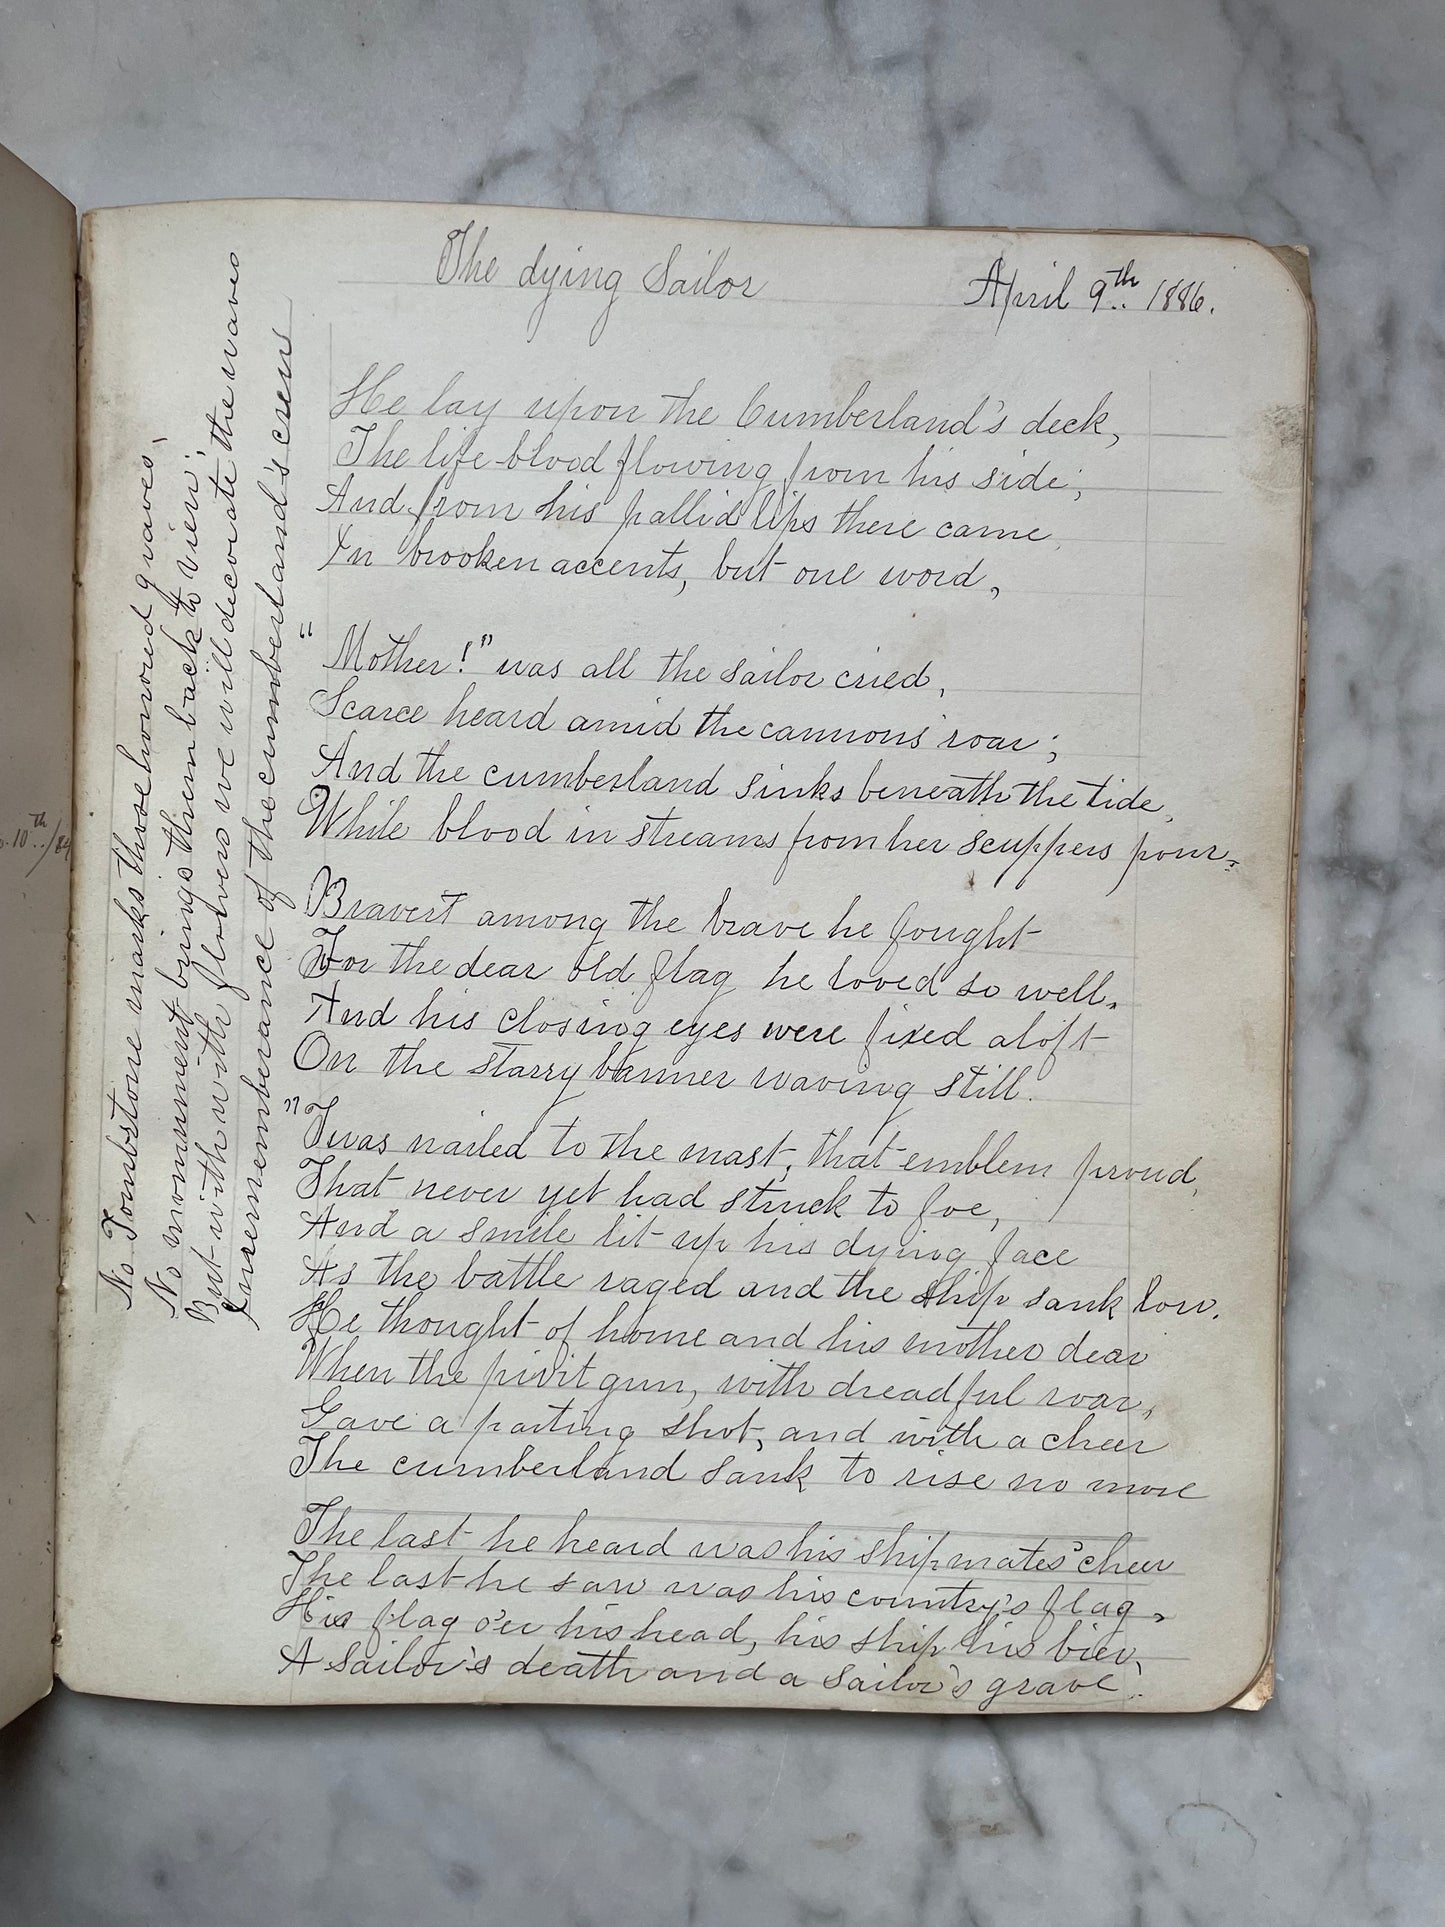 The dying Sailor
April 9th.. 1886.
He lay upon the Cumberland's deck,
The life-blood flowing from his side;
And from his pallid lips there came
In brooken accents, but one word,
"Mother!" was all the sailor cried,
Scarce heard amid the cannons' roar;
And the cumberland sinks beneath the tide,
While blood in streams from her scuppers pour-
Bravest among the brave he fought
For the dear old flag he loved so well.
And his closing eyes were fixed aloft
On the starry banner waving still.
"Twas nailed to the mast, that emblem proud,
That never yet had struck to foe,
And a smile lit up his dying face
As the battle raged and the ship sank low.
He thought of home and his mother dear
When the pivit gun, with dreadful roar,
Gave a parting shot, and with a cheer
The cumberland sank to rise no more
The last he heard was his shipmates' cheer
The last he saw was his country's flag,
His flag o'er his head, his ship his bier,
A sailor's death and a sailor's grave.
No Tombstone marks those honored graves,
No monument brings them back to view;
But with with flowers we will decorate the waves
In rememberance of the cumberland's crew
10th../84